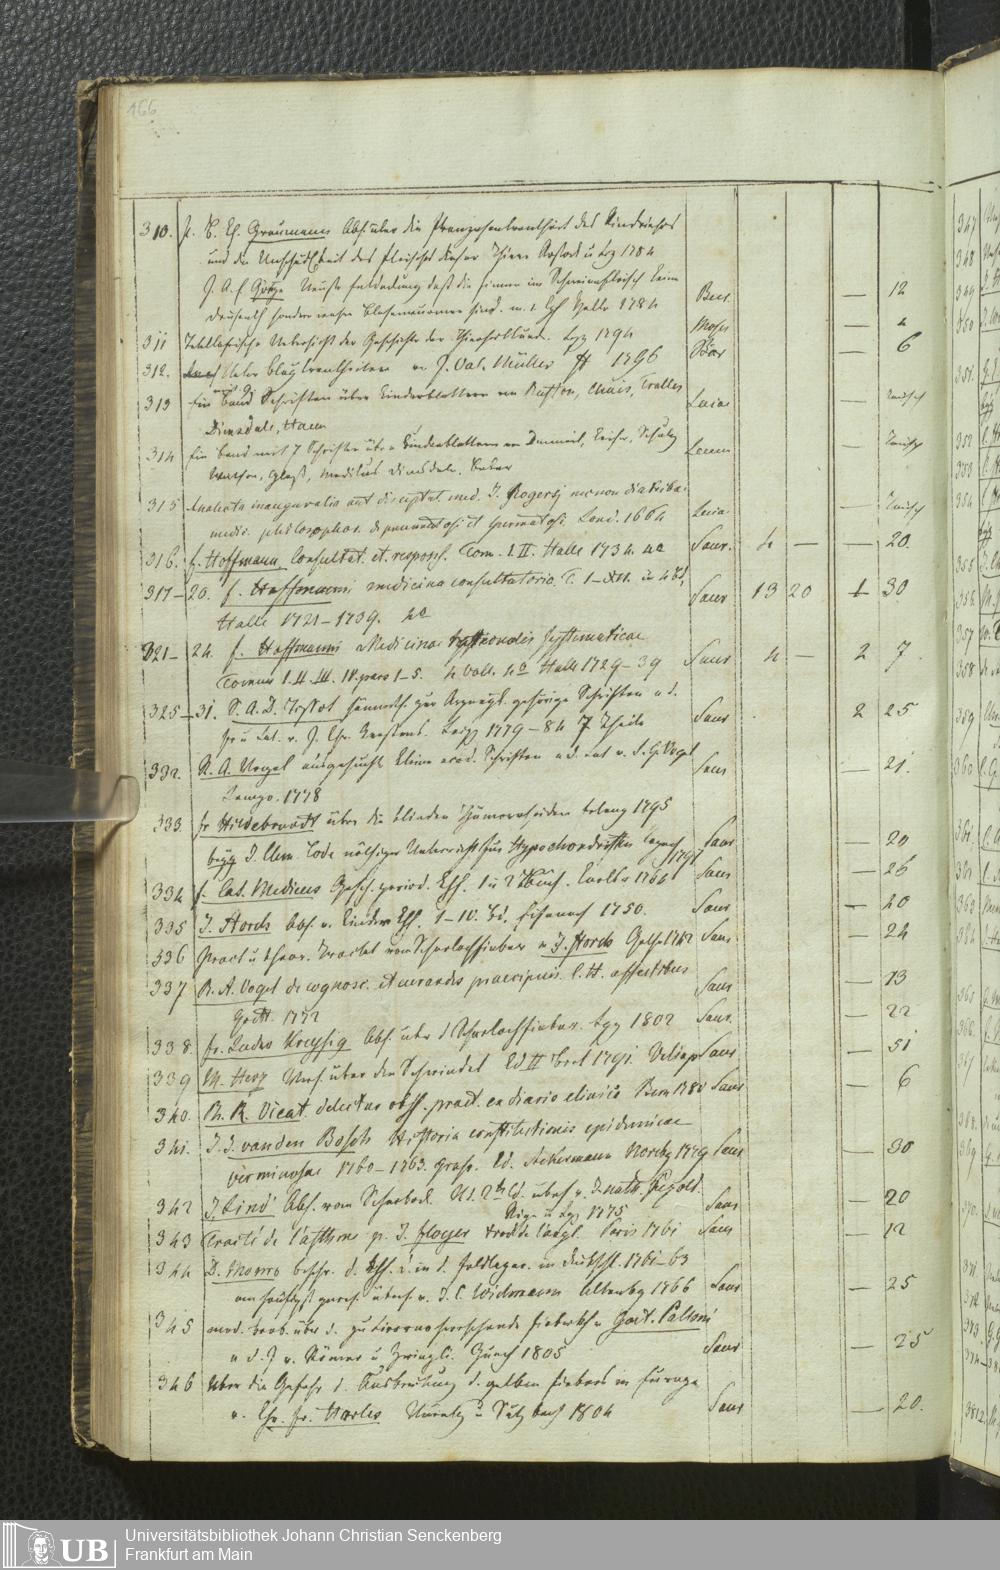 166
310. J. P. C. Graumann Abh. über die Franzosenkrankheit des Rindviehes
und die Unschädlichkeit des Fleisches dieser Thiere Rostock u Lpz 1784
J. A. E Götze Neuste Entdeckung daß die Finnen im Schweinefleisch keine
Drüsenkh sondern wahre Blasenwürmer sind. m. 1 Kpf Halle 1784 — 12
311 Tabellarische Uebersicht der Geschichte der Thierheilkunde. Lpz 1794 — 4
312. Ueber Augkrankheiten v. J. Val. Müller Ff 1796 — 6
313 Ein Band Schriften über Kinderblattern von Ruston, Chais, Tralles
Dimsdale, Haen Lucae — Tausch
314 Ein Band mit 7 Schriften über Kinderblattern von Schulz
Watson, Glass, Medikus Dimsdale. Baker — Tausch
315 Analecta inauguralia aut disceptat. med. J. Rogersii necnon diatribae
medic. philosophor. de pneumatosi et spermatosi. Lond. 1664 Lucae — Tausch
316. f. Hoffmann Consultat. et. respons. Tom. I. II. Halle 1734. 4o Saur. 4 — — 20.
317–20. f. Hoffmanni medicina consultatoria T. 1–XII. in 4 Bd,
Halle 1721–1739. 4o Saur 13 20 1 30
321–24. f. Hoffmanni Medicinae rationalis systematicae
Tomus I. II. III. IV. pars 1–5. 4 Voll. 4o Halle 1729–39 Saur 4 — 2 7.
325–31. S. A. D. Tissot sämmtl. zur Arzneyk. gehörige Schriften a. d.
fr u Lat. v. J. Chr. Kerstens. Leipz 1779–84 7 Theile Saur 2 25
332. R. A. Vogel ausgesucht kleine acad. Schriften a d. Lat v. J. G. Vogel
Lemgo. 1778 Saur — 21.
333. fr Hildebrandt über die blinden Hämorrhoiden Erlang 1795
beyg J. Clem. Tode nöthiger Unterricht für Hypochondristen 1797 Saur — 20
334 f. Cas. Medicus Gesch. period. Khh. 1 u 2 Buch. Carlsr 1764 Saur — 26
335 J. Storch Abh. v. Kinder Khh. 1–IV. Bd. Eisenach 1750. Saur — 40
336 Pract u theor. Tractat vom Scharlachfieber v J. Storch Gotha 1742 Saur — 24
337 R. A. Vogel de cognosc. et curandis praecipuis C. H. affectibus
Gött. 1772 Saur — 13
338. fr. Ludw Kreysig Abh. über d Scharlachfieber. Lpz 1802 Saur. — 22
339 M. Herz Vers. über den Schwindel Ed II Berl 1791. Saur — 51
340. Ph. R. Vicat. delectus obss. pract. ex diario clinico Bern 1780 Saur — 6
341. J. J. van den Bosch Historia constitutionis epidemicae
verminosae 1760–1763. grass. Ed. Ackermann Noribg 1779 Saur — 30
342 J. Lind Abh. vom Scharbock. Ed. 2te übers v. J. Nath. Pezold.
Riga u Lpz 1775 Saur — 20
343 Traité de l'asthme p. J. Floyer trad de l'angl. Paris 1761 Saur — 12
344 D. Monro beschr. d. Khh. d. in d. Feldlagern. in Deutschl. 1761–63
am häufigst gewes. übers v. J. C. Widmann Altenbg 1766 Saur — 25
345 med. Beob. über d. zu Livorno herrschende Fieberkh v Gaet. Palloni
a d. J v. Römer u Zwingli. Zürch 1805 Saur — 25
346 Ueber die Gefahr d. Ausbreitung d. gelben Fiebers in Europa
v. Chr. fr. Harles Nürnbg u Sulzbach 1804 Saur — 20.
UB
Universitätsbibliothek Johann Christian Senckenberg
Frankfurt am Main